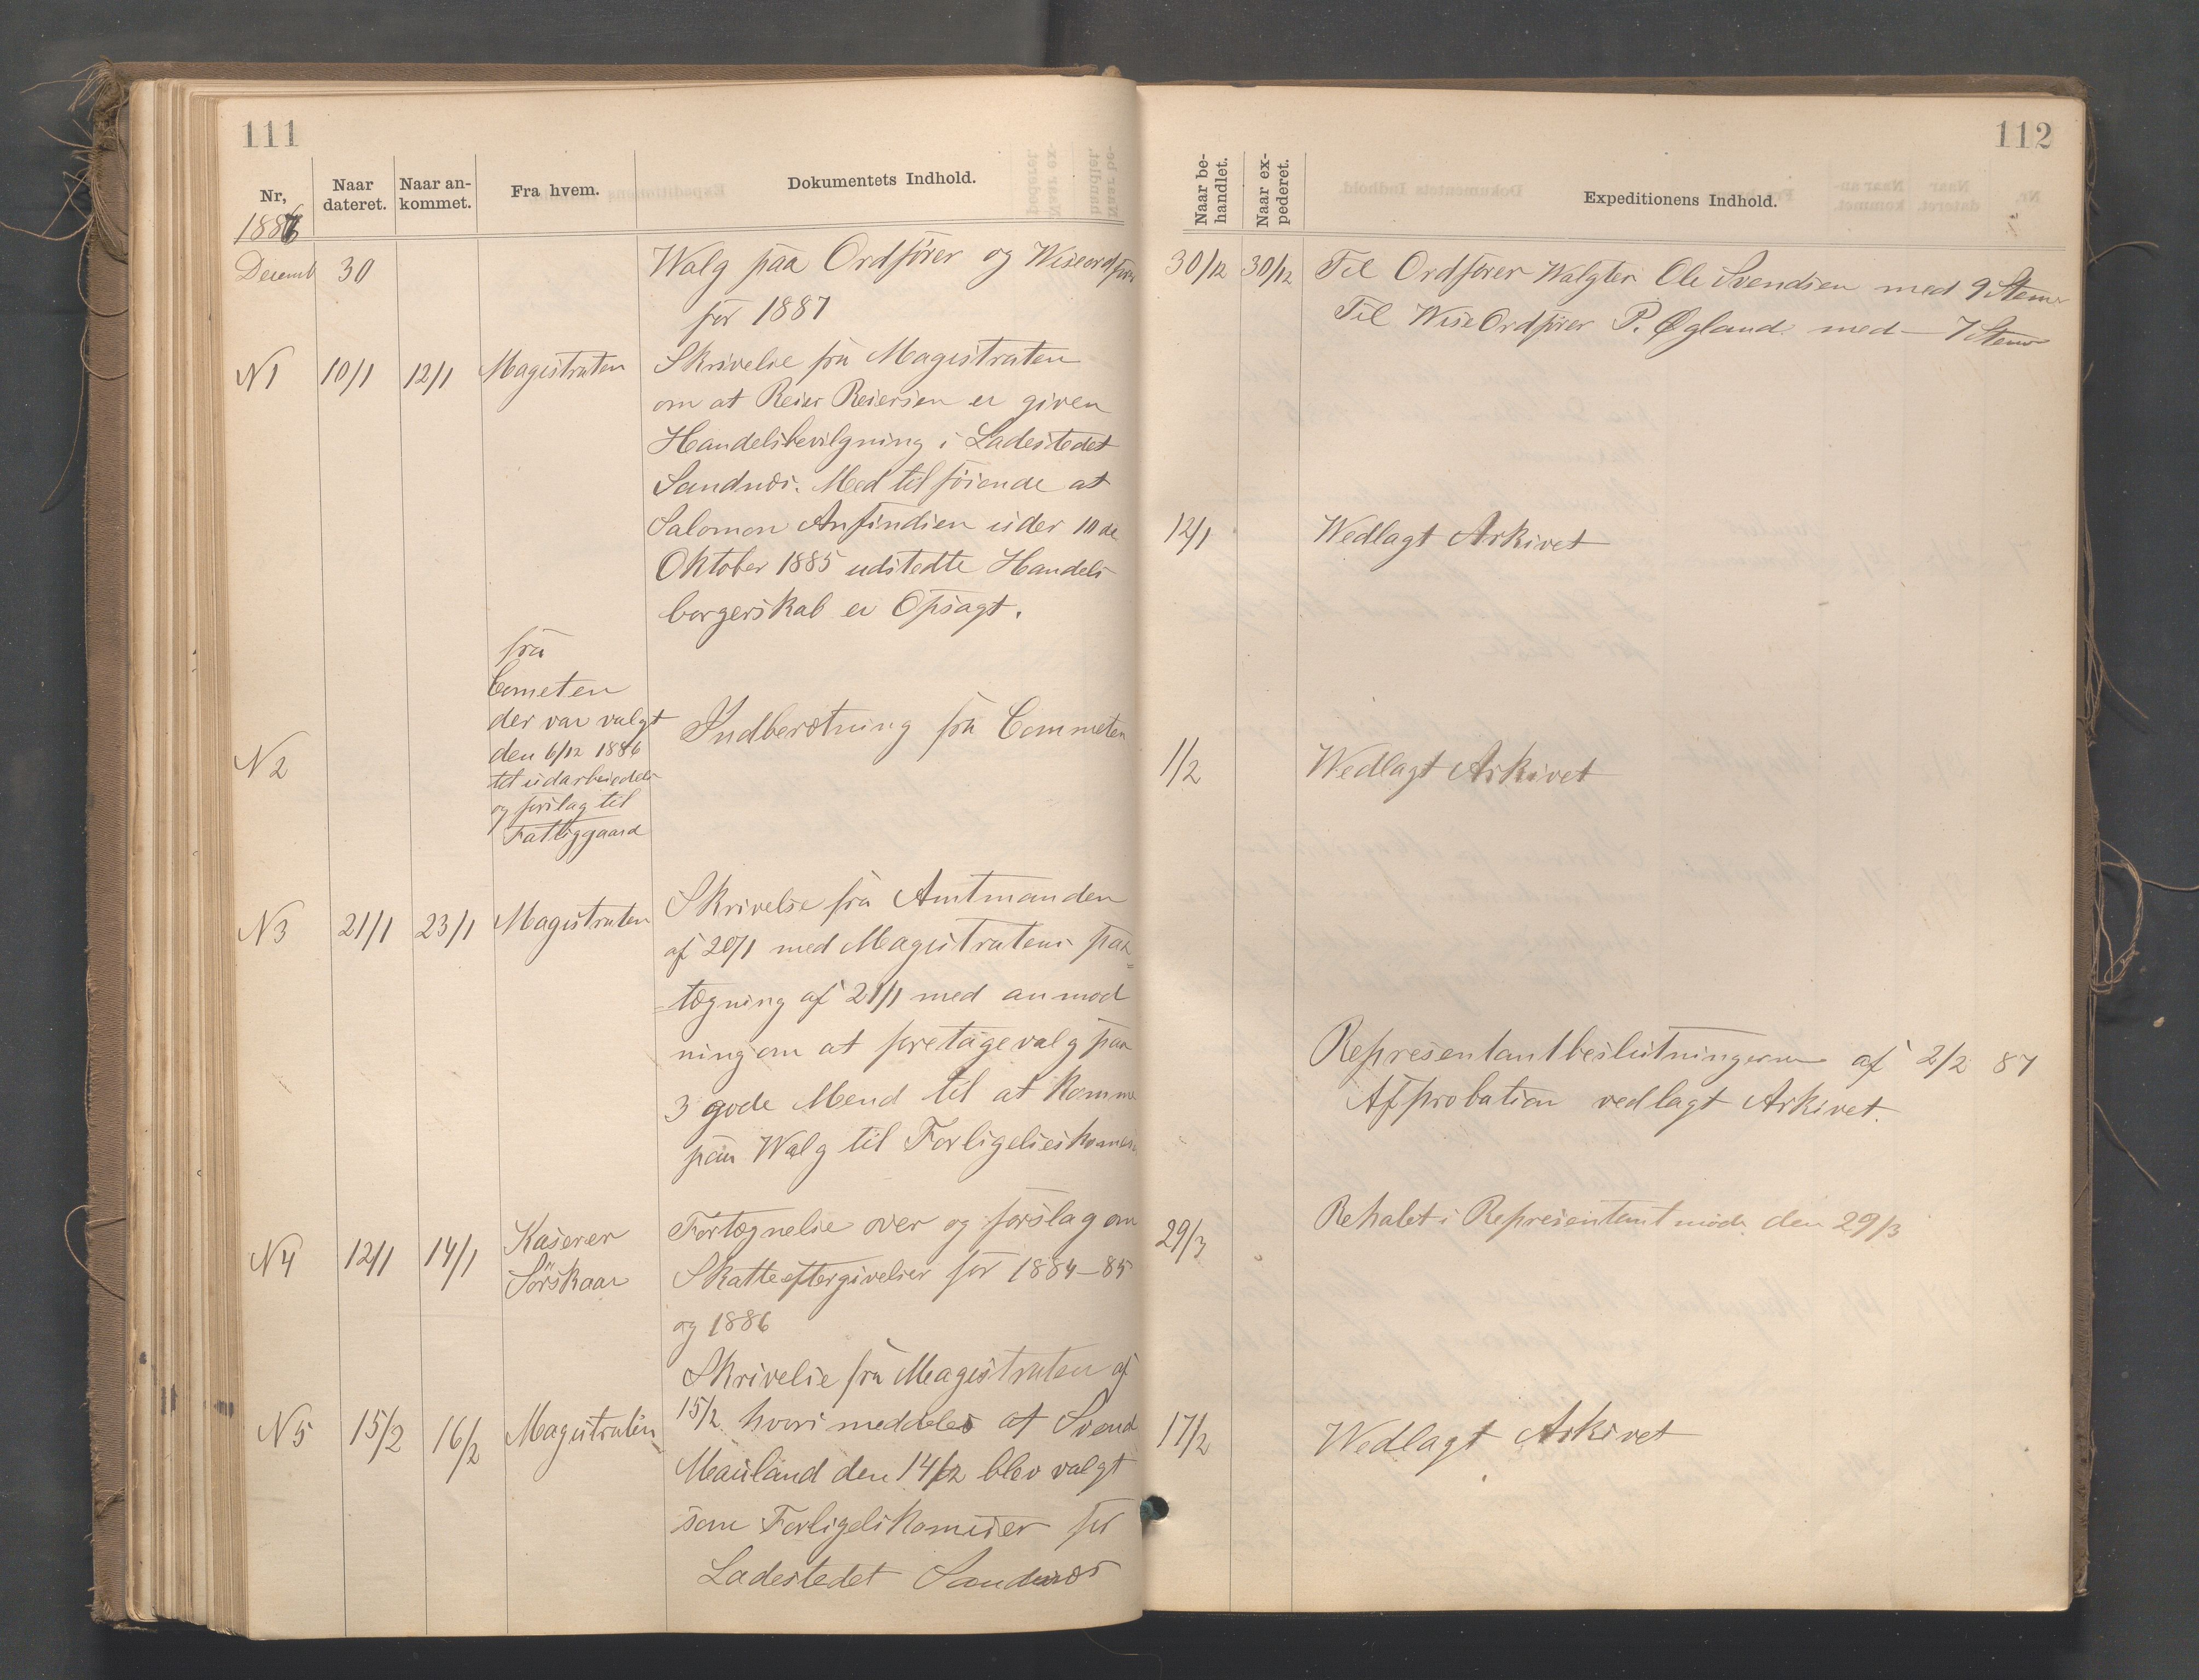 111
Nr,
Naar dateret.
Naar an-
kommet.
Fra hvem.
Dokumentets Indhold.
1886
Decemb 30
Walg paa Ordfører og Wiseordfører
for 1887
N1 10/1 12/1 Magistraten
Skrivelse fra Magistraten
om at Reier Reiersen er given
Handelsbevilgning i Ladestedet
Sandnæs. Med til føiende at
Salomon Anfindsen under 10de
Oktober 1885 udstedte Handels
borgerskab er Opsagt.
N2
fra
Cometen
der var valgt
den 6/12 1886
til udarbeidelse
og forslag til
Fattiggaard
Indberetning fra Commeten
N3 21/1 23/1 Magistraten
Skrivelse fra Amtmanden
af 20/1 med Magistratens paa-
tegning af 21/1 med anmod
ning om at foretage valg paa
3 gode Mend til at komme
paa Walg til Forligelseskomesion
N4 12/1 14/1 Kaserer
Sørskaar
Fortegnelse over og forslag om
Skatteeftergivelser for 1884-85
og 1886
N5 15/2 16/2 Magistraten
Skrivelse fra Magistraten af
15/2 hvori meddeles at Svend
Mauland den 14/2 blev valgt
som Forligelskomeser for
Ladestedet Sandnæs
112
Naar be-
handlet.
Naar ex-
pederet.
Expeditionens Indhold.
30/12 30/12 Til Ordfører Walgtes Ole Svendsen med 9 Stemr
Til WiseOrdfører P. Øgland med - 7 Stemr
12/1 Wedlagt Arkivet
1/2 Wedlagt Arkivet
Representantbeslutningerne af 2/2 87
Afprobation vedlagt Arkivet.
29/3 Behalet i Representantmøde den 29/3
17/2 Wedlagt Arkivet